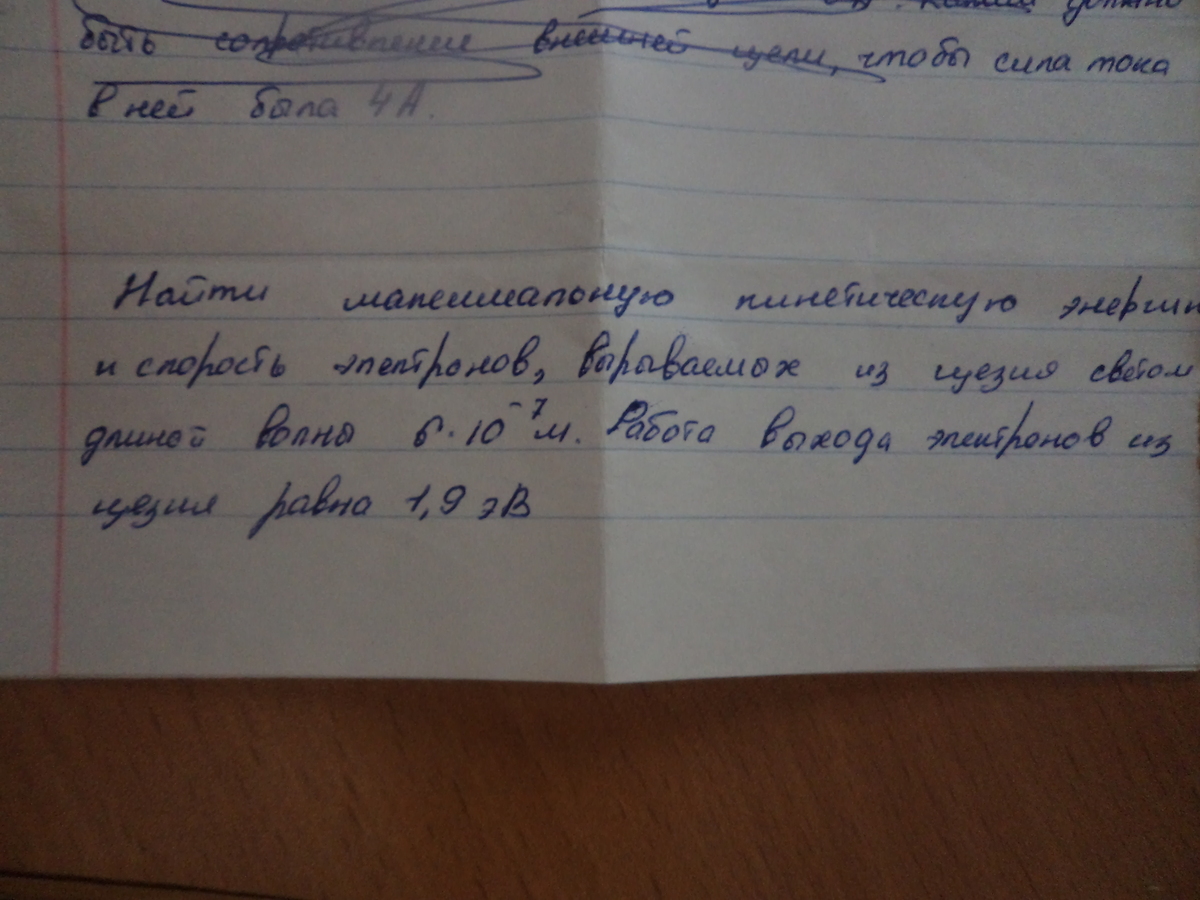 должно
быть сопротивление внешней цепи, чтобы сила тока
в ней была 4А.
Найти максимальную кинетическую энергию
и скорость электронов, вырываемых из цезия светом
длиной волны 6·10⁻⁷м. Работа выхода электронов из
цезия равна 1,9 эВ